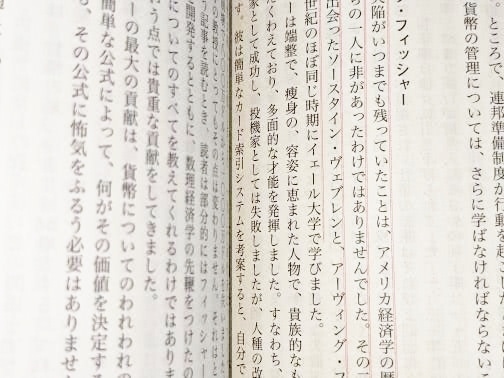 。ところで、連邦準備制度が行動を起こし
貨幣の管理については、さらに学ばなければならない
・フィッシャー
欠陥がいつまでも残っていたことは、アメリカ経済学の歴
の一人に非があったわけではありませんでした。その二
出会ったソースタイン・ヴェブレンと、アーヴィング・フ
世紀のほぼ同じ時期にイェール大学で学びました。
ーは端整で、痩身の、容姿に恵まれた人物で、貴族的なも
たくわえており、多面的な才能を発揮しました。すなわち、
家として成功し、投機家としては失敗しましたが、人種の改
す。彼は簡単なカード索引システムを考案すると、自分で
の教授にとってもその点は変わりません。それはと
う記事を読むとき、読者は部分的にはフィッシャー
開発するとともに、数理経済学の先鞭をつけたの
についてのすべてを教えてくれるわけではありま
行う点では貴重な貢献をしてきました。
ーの最大の貢献は、貨幣についてのわれわれの
簡単な公式によって、何がその価値を決定する
も、その公式に怖気をふるう必要はありませ